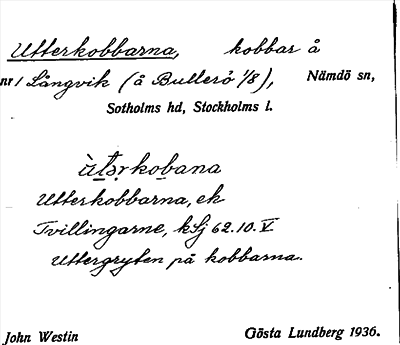 Utterkobbarna, kobbar å
nr 1 Långvik (å Bullerö 1/8), Nämdö sn,
Sotholms hd, Stockholms l.
ùtərkobana
Utterkobbarna, ek
Tvillingarne, kSj 62.10.V.
Uttergryten på kobbarna.
John Westin Gösta Lundberg 1936.